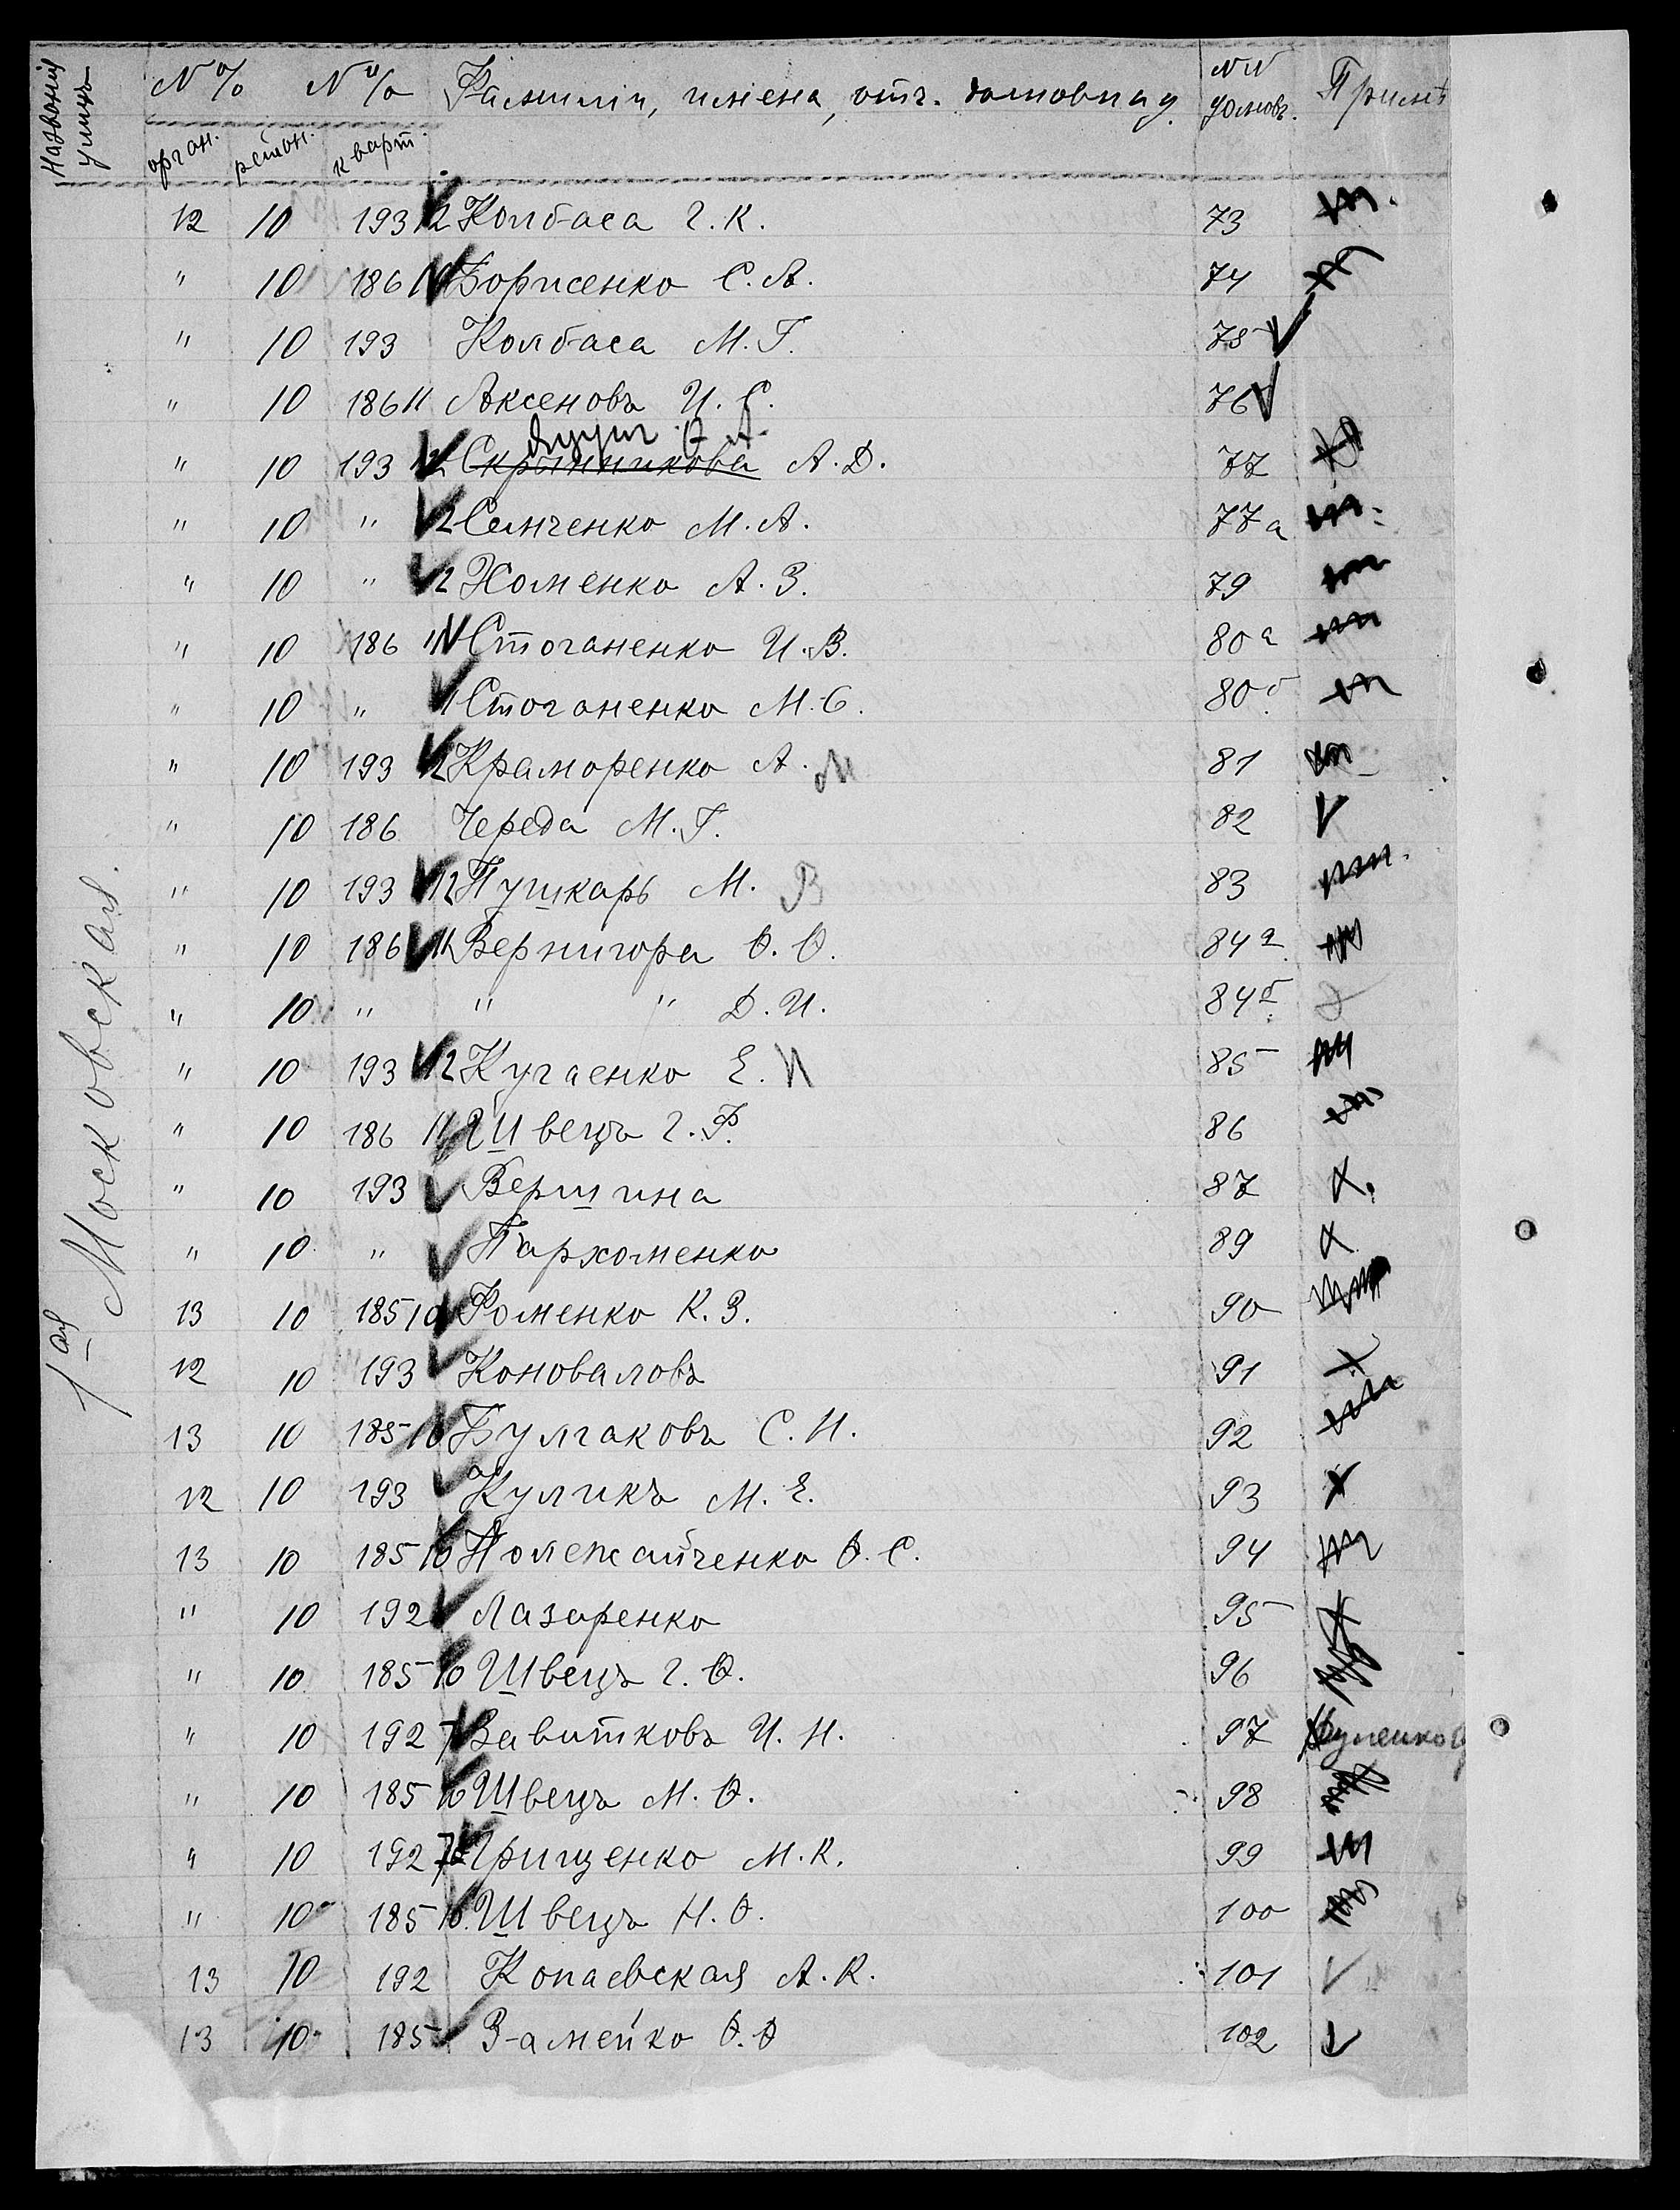 Названия улицъ N% N% Фамилiи, имена, отч. домовлад. NN домовъ. Примѣ
орган. район. кварт.
1ая Московская.
12 10 193 12 Колбаса Г. К. 73
" 10 186 11 Борисенко С. А. 74
" 10 193 Колбаса М. Г. 75
" 10 186 11 Аксеновъ И. С. 76
" 10 193 12 Скрынникова А. Д. 77
" 10 " 12 Семченко М. А. 77а
" 10 " 12 Хоменко А. З. 79
" 10 186 11 Стоганенко И. В. 80а
" 10 " 11 Стоганенко М. С. 80б
" 10 193 12 Краморенко А. М 81
" 10 186 Череда М. Г. 82
" 10 193 12 Пушкарь М. В 83
" 10 186 11 Вернигора Ѳ. Ѳ. 84а
" 10 " " " Д. И. 84б
" 10 193 12 Кугаенко Е. И 85
" 10 186 11 Швецъ Г. Ф. 86
" 10 193 Вершина 87
" 10 " Пархоменко 89
13 10 185 10 Фоменко К. З. 90
12 10 193 Коноваловъ 91
13 10 185 10 Булгаковъ С. Н. 92
12 10 193 Куликъ М. Е. 93
13 10 185 10 Полежайченко Ѳ. С. 94
" 10 192 Лазаренко 95
" 10 185 10 Швецъ Г. Ѳ. 96
" 10 192 7 Завитковъ И. Н. 97
" 10 185 10 Швецъ М. Ѳ. 98
" 10 192 7 Грищенко М. К. 99
" 10 185 10 Швецъ Н. Ѳ. 100
13 10 192 Копаевская А. К. 101
13 10 185 Замейко Ѳ. Ѳ 102